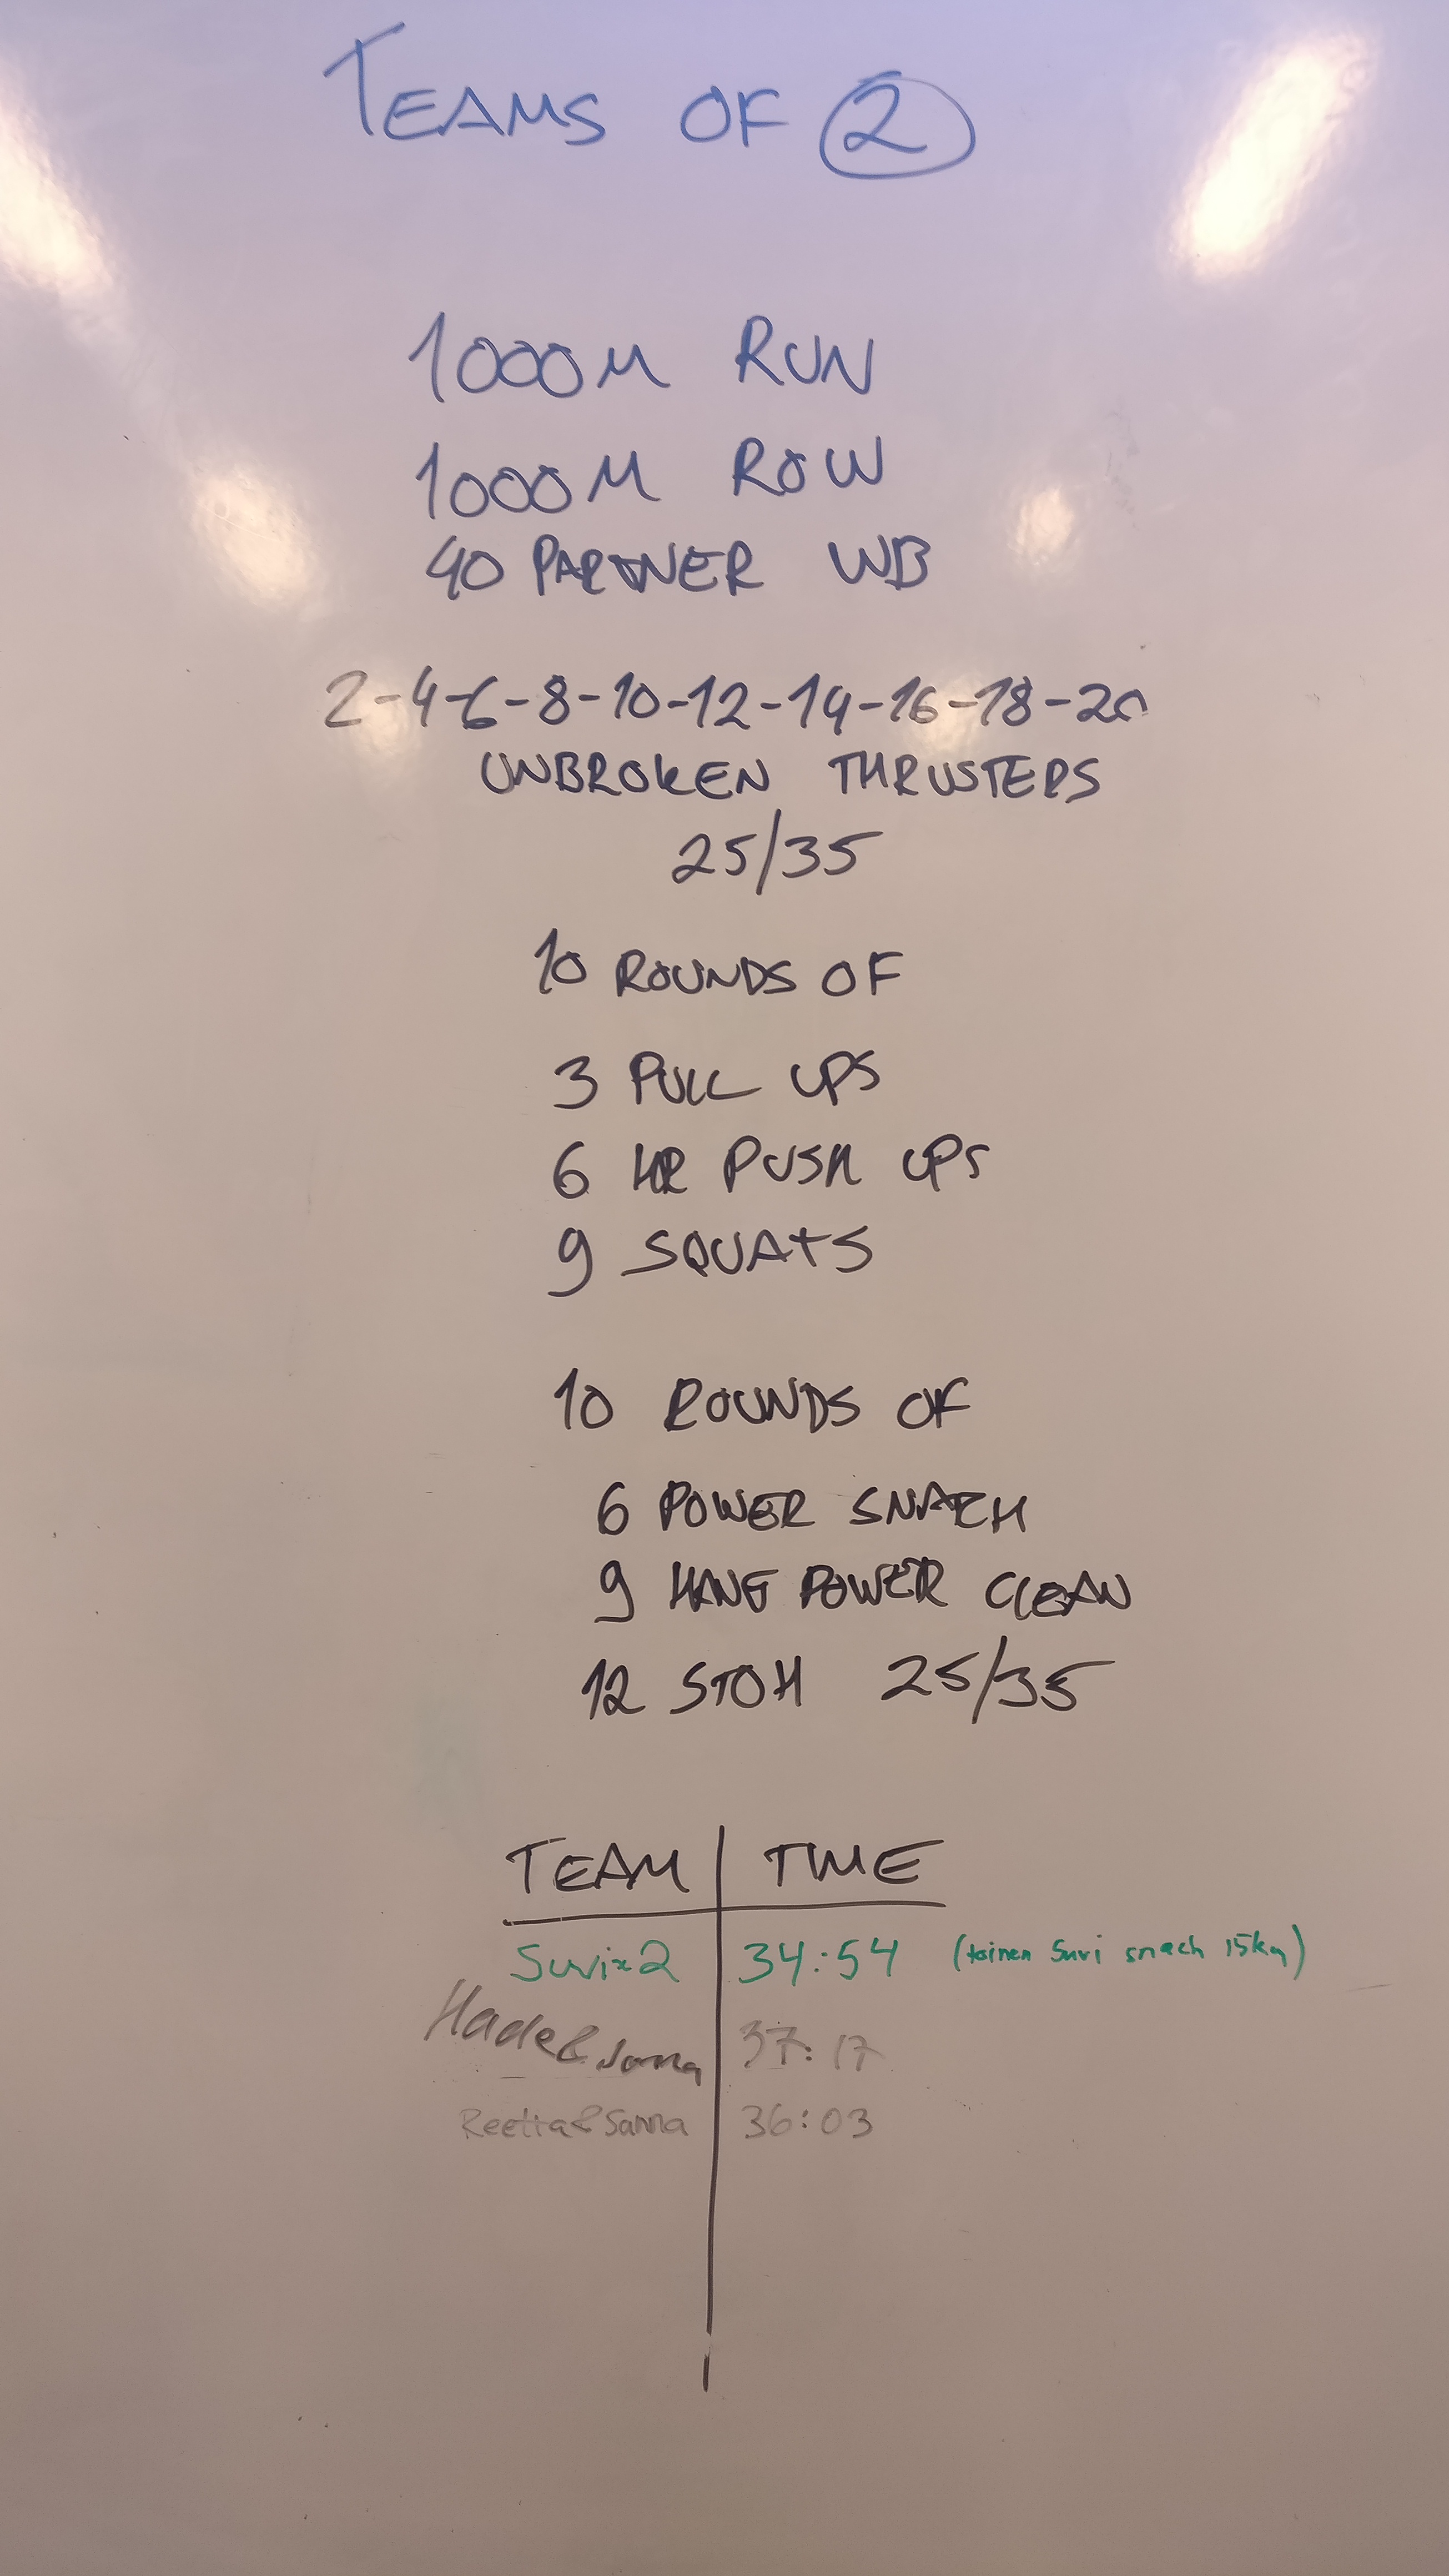 TEAMS OF 2
1000M RUN
1000M ROW
40 PARTNER WB
2-4-6-8-10-12-14-16-18-20
UNBROKEN THRUSTERS
25/35
10 ROUNDS OF
3 PULL UPS
6 HR PUSH UPS
9 SQUATS
10 ROUNDS OF
6 POWER SNATCH
9 HANG POWER CLEAN
12 STOH 25/35
TEAM TIME
Suvix2 34:54 (toinen Suvi snach 15kg)
Hade& 37:17
Reetta&Sanna 36:03